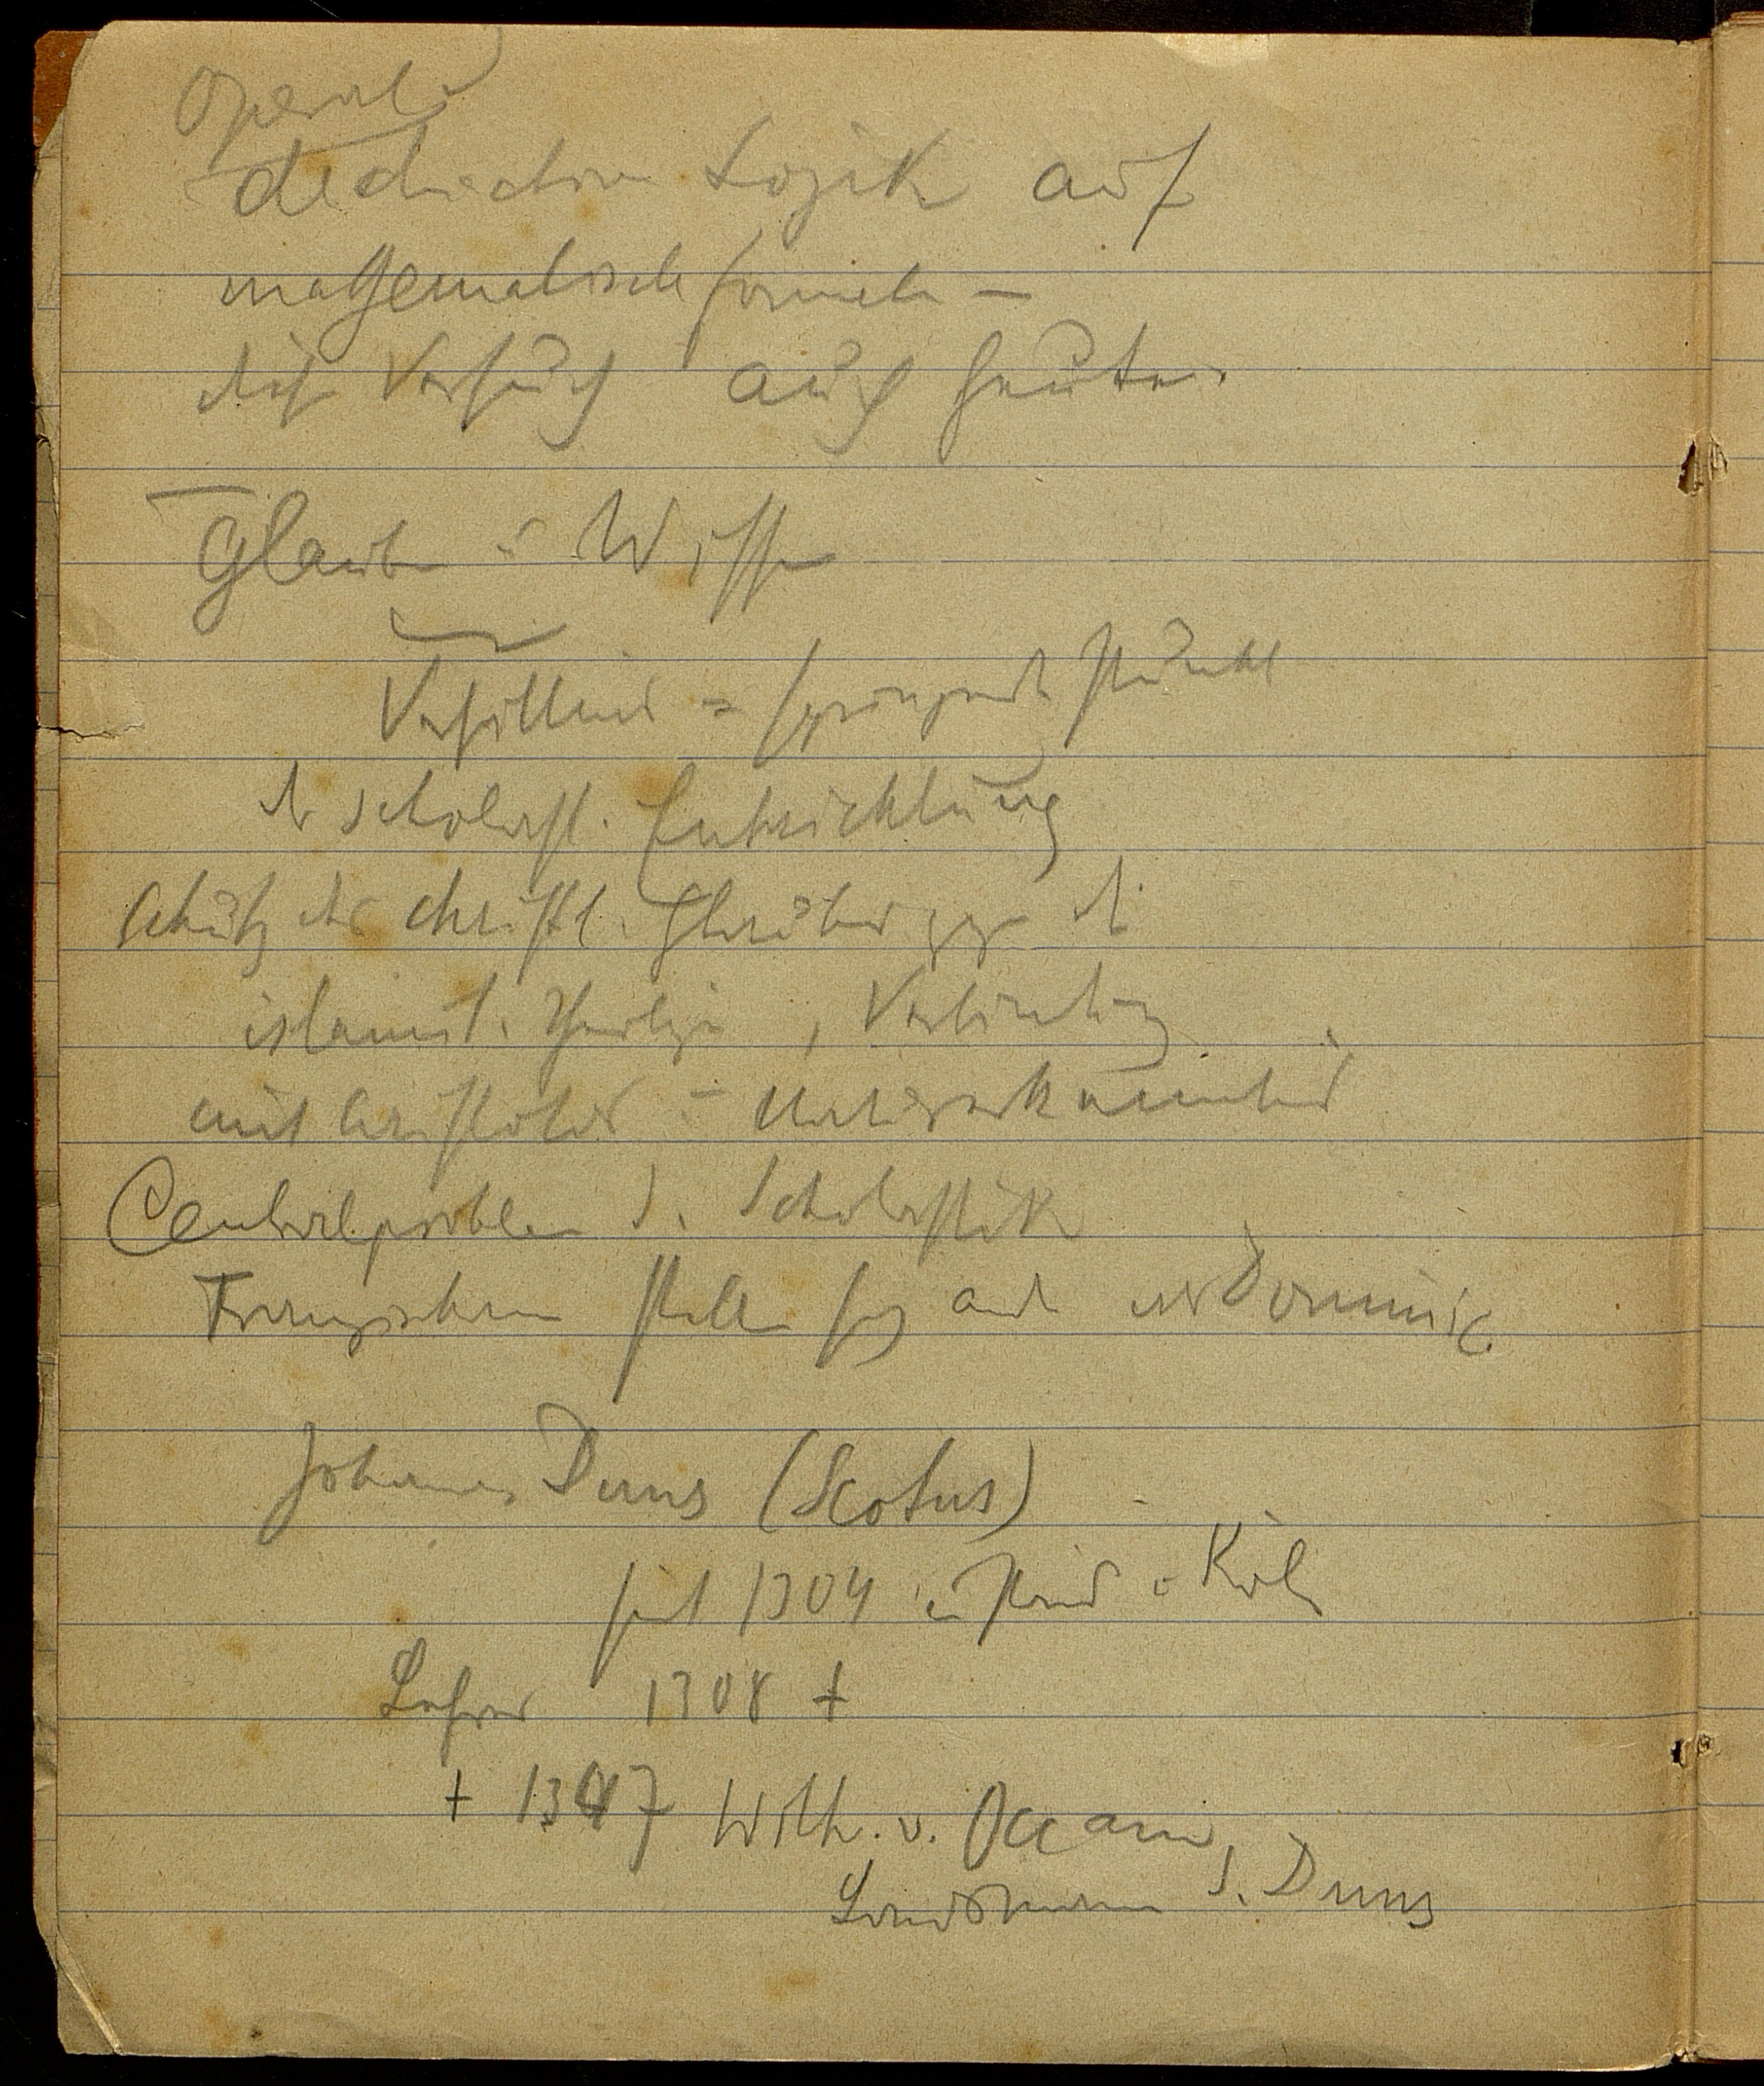 Operat.
deductive Logik auf
mathematische Formeln —
diese Versuche auch heute.
Glaube u Wissen
Verhältnis = springende Punkt
der scholast. Entwicklung
Schutz des christl. Glaubens gegen die
islamit. , Verbindung
mit Aristoteles =
Centralproblem d. Scholastik
Franziskaner stellen sich and als Dominic.
Johannes Duns (Scotus)
seit 1304 in Paris u Köln
Lehrer 1308 †
† 1347 Wilh. v. Occam,
Landsmann d. Duns